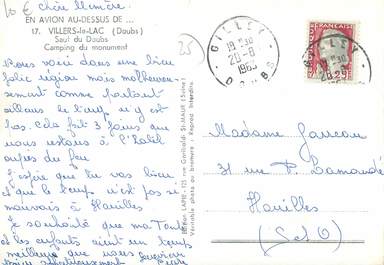 10€ chère Mémère
EN AVION AU-DESSUS DE ...
17. VILLERS-le-LAC (Doubs)
Saut du Doubs
Camping du monument
Nous voici dans une bien
jolie région mais malheureu-
sement comme partout
ailleurs le temps n'y est
pas. Cela fait 3 jours que
nous restons à l'hôtel
auprès du feu
J'espère que tu vas bien
et que le temps n'est pas si
mauvais à Houilles
Je souhaite que ma Tante
et les enfants aient un temps
meilleur que nous
affectueusement
25
Edition LAPIE - 121 rue Garibaldi St-MAUR (Seine)
Véritable photo au bromure - Reprod. Interdite
GILLEY
18H30
20-8
1963
DOUBS
GILLEY
18H30
20-8
Madame
31 rue P.
Houilles
(S et O)